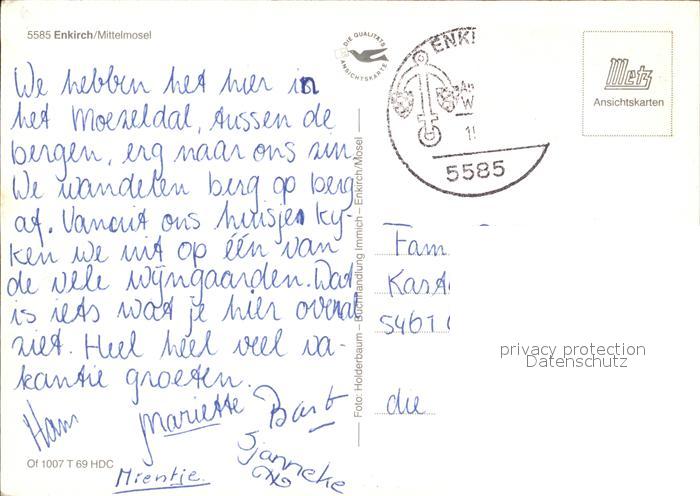 5585 Enkirch/Mittelmosel
We hebben het hier in
het Moezeldal, tussen de
bergen, erg naar ons zin.
We wandelen berg op berg
af. Vanuit ons huisjen ky-
ken we uit op één van
de vele wijngaarden. Dat
is iets wat je hier overal
ziet. Heel heel veel va-
kantie groeten.
Ham Mariette Bart
Mientje Sjanneke
Of 1007 T 69 HDC
Foto: Holderbaum – Buchhandlung Immich – Enkirch/Mosel
DIE QUALITÄTS
ANSICHTSKARTE
ENKI
5585
Metz
Ansichtskarten
Fam
Kast
5461
du
privacy protection
Datenschutz